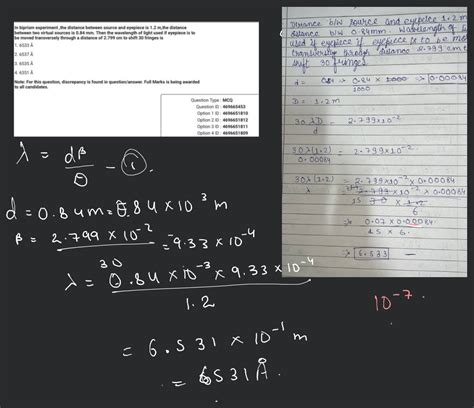 In biprism experiment ,the distance between source and eyepiece is 1.2 m,the distance
between two virtual sources is 0.84 mm. Then the wavelength of light used if eyepiece is to
be moved transversely through a distance of 2.799 cm to shift 30 fringes is
1. 6533 Å
2. 6537 Å
3. 6535 Å
4. 6351 Å
Note: For this question, discrepancy is found in question/answer. Full Marks is being awarded
to all candidates.
Question Type : MCQ
Question ID : 4696653453
Option 1 ID : 46966511810
Option 2 ID : 46966511812
Option 3 ID : 46966511811
Option 4 ID : 46966511809
λ = dβ / D - ①.
d = 0.84m = 0.84 × 10³ m
β = 2.799 × 10⁻² / 30 = 9.33 × 10⁻⁴
λ = 0.84 × 10⁻³ × 9.33 × 10⁻⁴
1.2
= 6.531 × 10⁻¹ m
= 6531 Å.
Distance b/w source and eyepiece 1.2m
distance b/w 0.84mm. Wavelength of
used if eyepiece if eyepiece to be mo
transversely through distance 2.799 cm t
shift 30 fringes
d = 0.84 → 0.84 × 1000 → 0.00084
1000
D = 1.2m
30λD / d = 2.799×10⁻²
30λ(1.2) / 0.00084 = 2.799×10⁻²
30λ(1.2) = 2.799×10⁻² × 0.00084
→ 0.07 × 0.00084
45 × 6
→ 6.533
10⁻⁷.